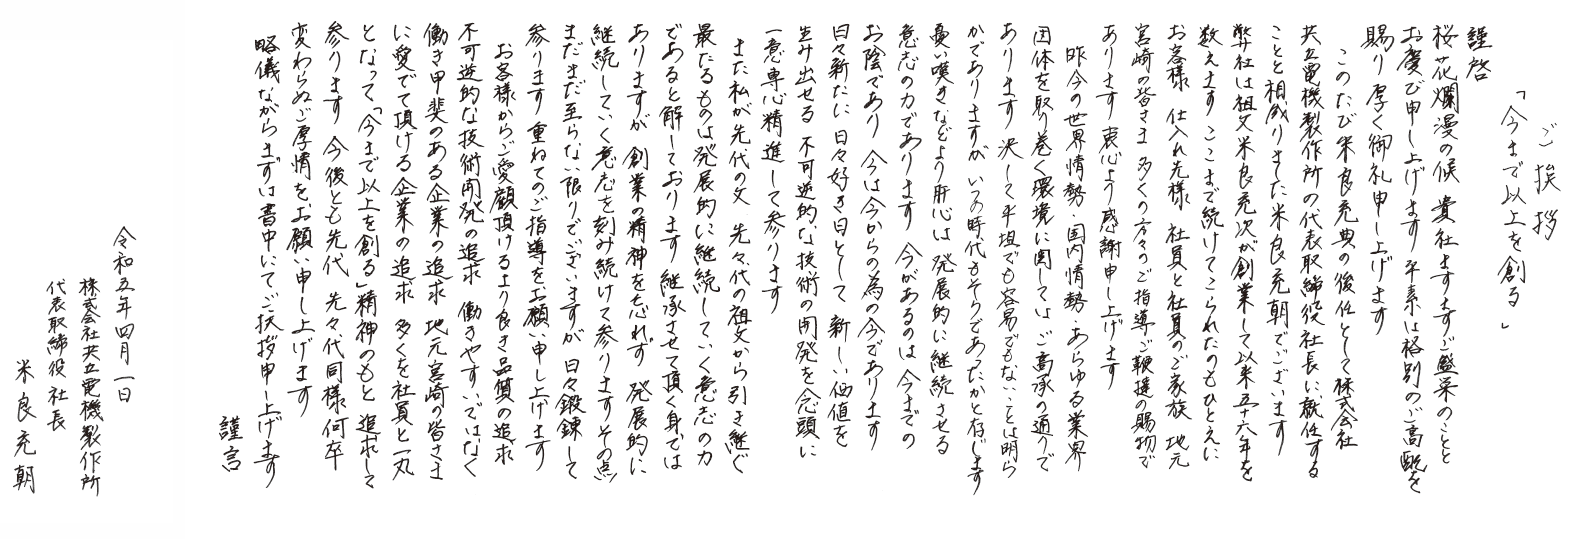 ご挨拶
「今まで以上を創る」
謹啓
桜花爛漫の候 貴社ますますご盛栄のことと
お慶び申し上げます 平素は格別のご高配を
賜り厚く御礼申し上げます
このたび米良充典の後任として株式会社
共立電機製作所の代表取締役社長に就任する
ことと相成りました米良充朝でございます
弊社は祖父米良充次が創業して以来五十六年を
数えます ここまで続けてこられたのもひとえに
お客様 仕入れ先様 社員と社員のご家族 地元
宮崎の皆さま 多くの方々のご指導ご鞭撻の賜物で
あります 衷心より感謝申し上げます
昨今の世界情勢・国内情勢 あらゆる業界
団体を取り巻く環境に関しては ご高承の通りで
あります 決して平坦でも容易でもないことは明ら
かでありますが いつの時代もそうであったかと存じます
憂い嘆きなどより肝心は 発展的に継続させる
意志の力であります 今があるのは 今までの
お陰であり 今は今からの為の今であります
日々新たに 日々好き日として 新しい価値を
生み出せる 不可逆的な技術の開発を念頭に
一意専心精進して参ります
また私が先代の父 先々代の祖父から引き継ぐ
最たるものは発展的に継続していく意志の力
であると解しております 継承させて頂く身では
ありますが 創業の精神を忘れず 発展的に
継続していく意志を刻み続けて参ります その点
まだまだ至らない限りでございますが 日々鍛錬して
参ります 重ねてのご指導をお願い申し上げます
お客様からご愛顧頂けるより良き品質の追求
不可逆的な技術開発の追求 働きやすいではなく
働き甲斐のある企業の追求 地元宮崎の皆さま
に愛でて頂ける企業の追求 多くを社員と一丸
となって「今まで以上を創る」精神のもと 追求して
参ります 今後とも先代 先々代同様 何卒
変わらぬご厚情を、お願い申し上げます
略儀ながらまずは書中にてご挨拶申し上げます
謹言
令和五年四月一日
株式会社共立電機製作所
代表取締役社長
米良充朝